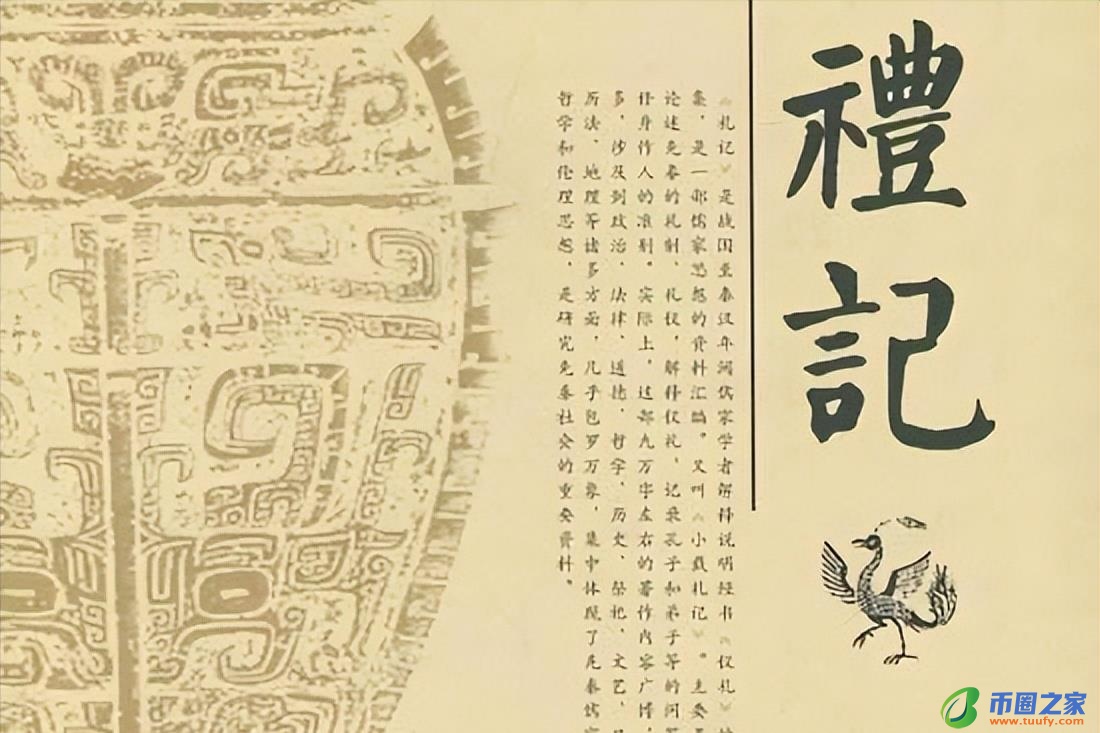 禮記
《礼记》是战国至秦汉年间儒家学者解释说明经书《仪礼》
集，是一部儒家思想的资料汇编。又叫《小戴礼记》。主要
论述先秦的礼制、礼仪，解释仪礼，记录孔子和弟子等的问
修身作人的准则。实际上，这部九万字左右的著作内容广博，
多，涉及到政治、法律、道德、哲学、历史、祭祀、文艺、
历法、地理等诸多方面，几乎包罗万象，集中体现了先秦儒
哲学和伦理思想，是研究先秦社会的重要资料。
币圈之家
www.tuufy.com